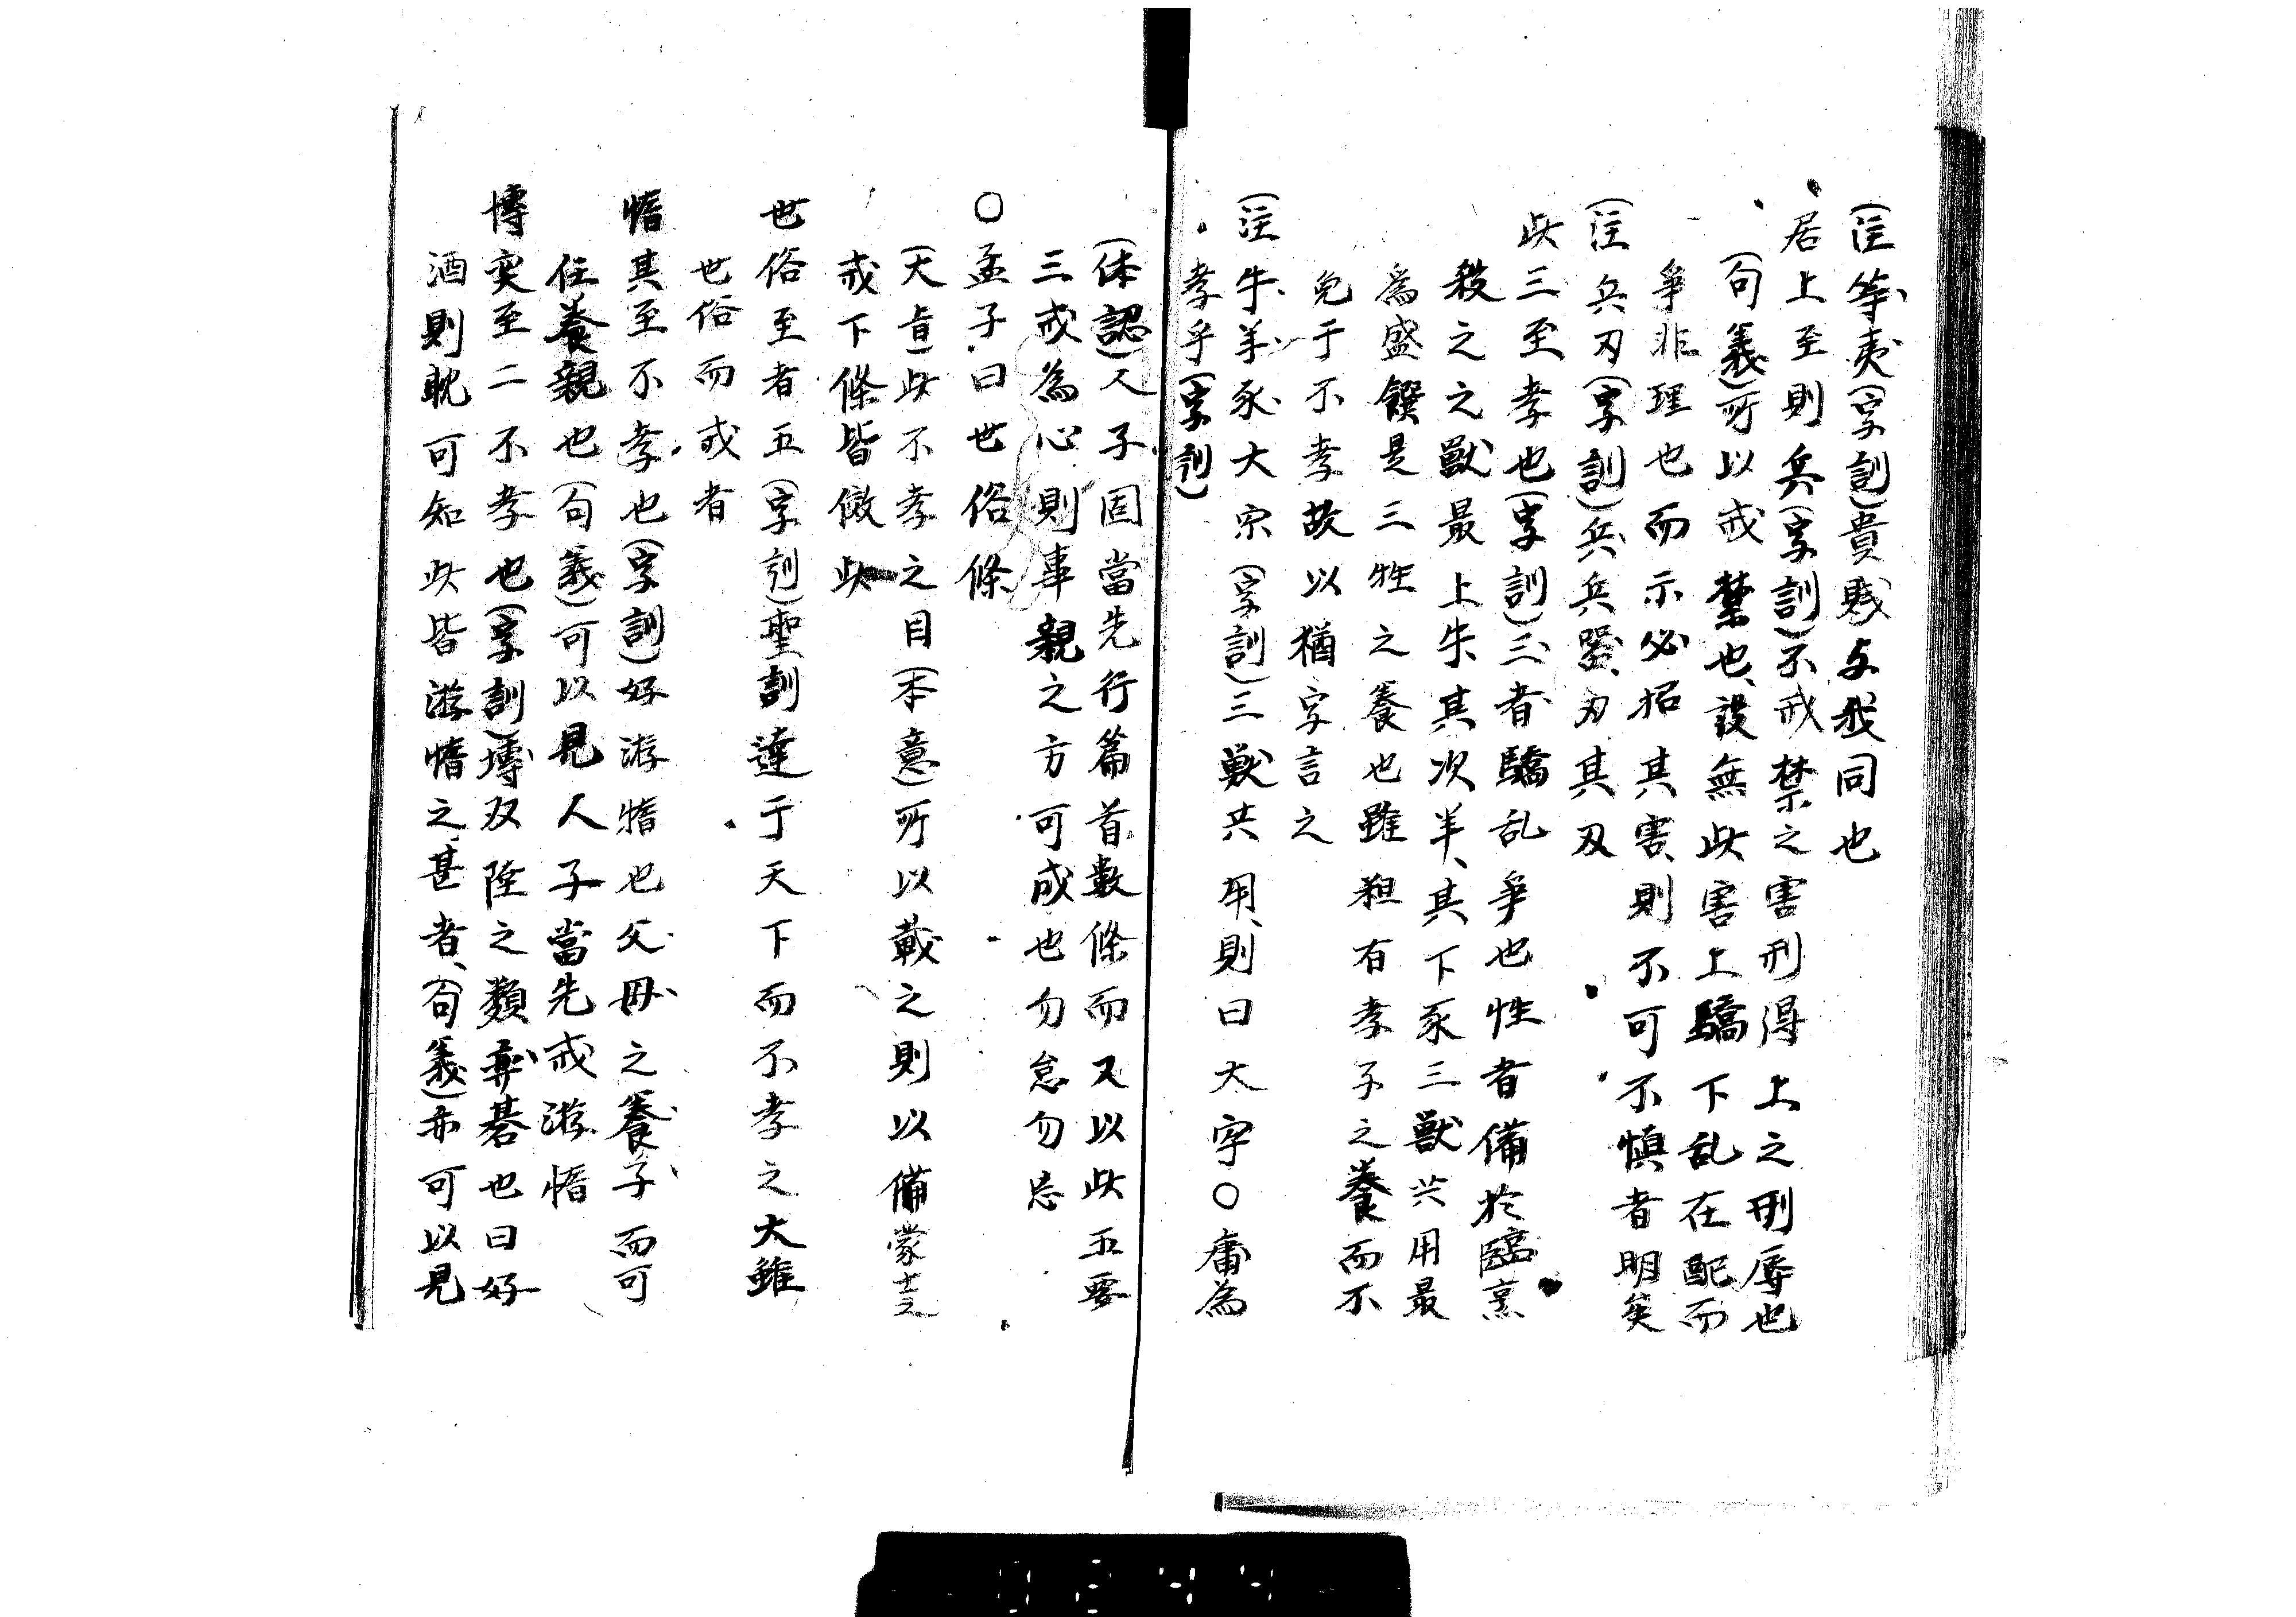 (注)等夷(字訓)貴賎与我同也
居上至則兵(字訓)不戒禁之害刑得上之刑辱也
(句義)所以戒禁也設無此害上驕下乱在配而
争非理也而示必招其害則不可不慎者明矣
(注)兵刃(字訓)兵兵器刃其刃
此三至孝也(字訓)三者驕乱争也牲者備於臨烹
殺之之獣最上牛其次羊其下豕三獣共用最
為盛饌是三牲之養也雖担有孝子之養而不
免于不孝故以猶字言之
(注)牛羊豕大宗(字訓)三獣共用則曰大字○庸為
孝乎(字訓)
(体認)人子固當先行篇首數條而又以此五要
三戒為心則事親之方可成也勿怠勿忘
○孟子曰世俗條
(大旨)此不孝之目(本意)所以載之則以備蒙士之
戒下條皆倣此
世俗至者五(字訓)聖訓達于天下而不孝之大雖
世俗而戒者
惰其至不孝也(字訓)好游惰也父母之養子而可
任養親也(句義)可以見人子當先戒游惰
博奕至二不孝也(字訓)博双陸之類奕碁也曰好
酒則耽可知此皆游惰之甚者(句義)亦可以見